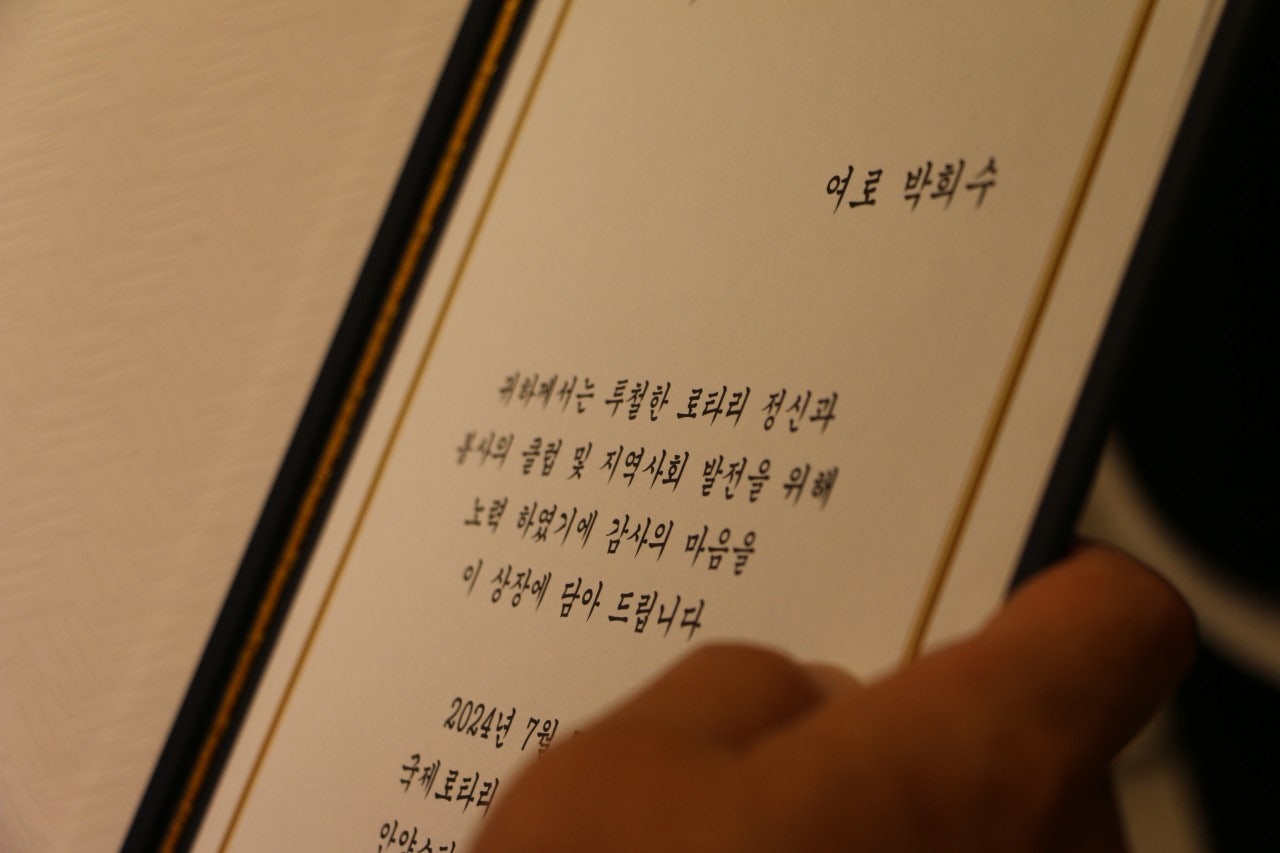 여로 박희수
귀하께서는 투철한 로타리 정신과
봉사의 클럽 및 지역사회 발전을 위해
노력 하였기에 감사의 마음을
이 상장에 담아 드립니다
2024년 7월
국제로타리